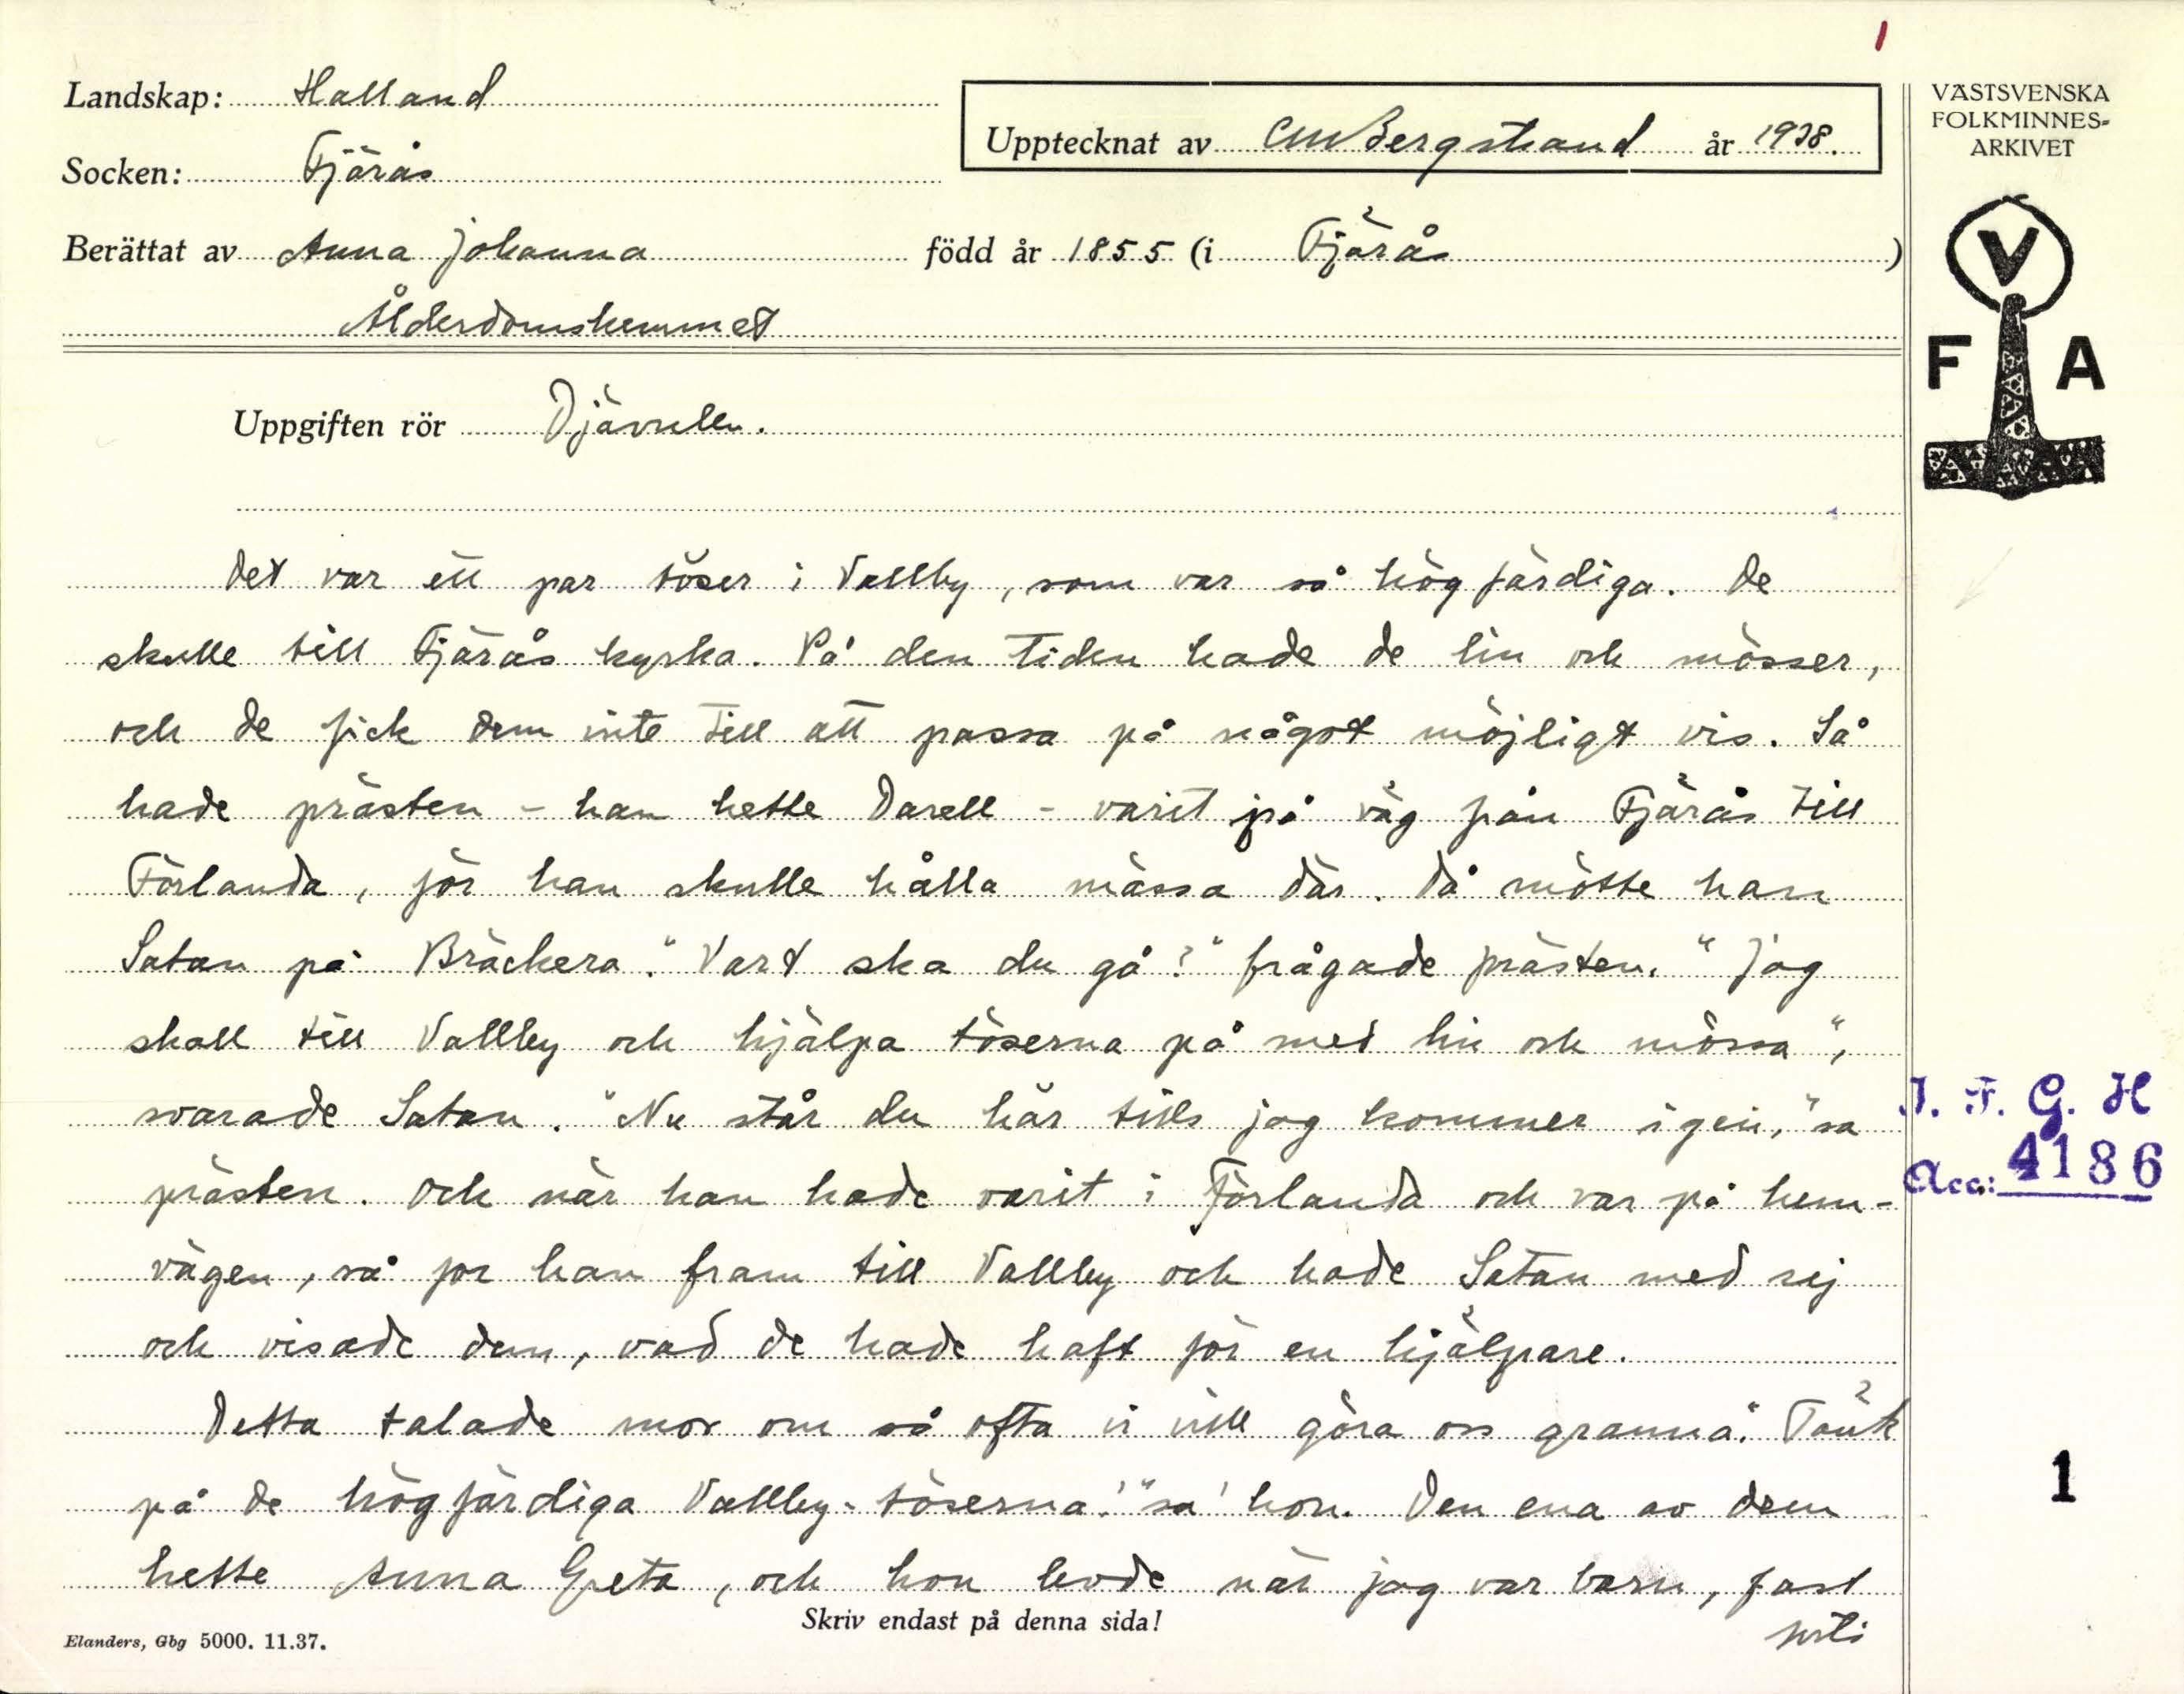 1
Landskap: Halland
Socken: Fjärås
Upptecknat av CMBergstrand år 1938.
Berättat av Anna Johanna född år 1855 (i Fjärås)
Ålderdomshemmet
VÄSTSVENSKA
FOLKMINNES-
ARKIVET
V
F A
Uppgiften rör Djävulen.
Det var ett par töser i Vallby, som var så högfärdiga. De
skulle till Fjärås kyrka. På den tiden hade de lin och mösser,
och de fick dem inte till att passa på något möjligt vis. Så
hade prästen - han hette Darell - varit på väg från Fjärås till
Förlanda, för han skulle hålla mässa där. Då mötte han
Satan på Bräckera. "Vart ska du gå?" frågade prästen. "Jag
skall till Vallby och hjälpa töserna på med lin och mössa",
svarade Satan. "Nu står du här tills jag kommer igen," sa
prästen. Och när han hade varit i Förlanda och var på hem-
vägen, så for han fram till Vallby och hade Satan med sej
och visade dem, vad de hade haft för en hjälpare.
Detta talade mor om så ofta vi vill göra oss granna. "Tänk
på de högfärdiga Vallby-töserna!" sa' hon. Den ena av dem
hette Anna Greta, och hon levde när jag var barn, fast
I. F. G. H
Acc: 4186
1
Skriv endast på denna sida!
Elanders, Gbg 5000. 11.37.